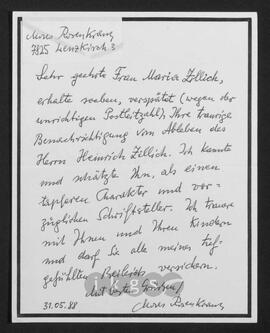 Moses Rosenkranz
7825 Lenzkirch 3
Sehr geehrte Frau Maria Zillich,
erhalte soeben, verspätet (wegen der
unrichtigen Postleitzahl), Ihre traurige
Benachrichtigung vom Ableben des
Herrn Heinrich Zillich. Ich kannte
und schätzte Ihn, als einen
tapferen Charakter und vor-
züglichen Schriftsteller. Ich traure
mit Ihnen und Ihren Kindern
und darf Sie alle meines tief-
gefühlten Beileids versichern.
Mit besten Grüßen,
31.05.88 Moses Rosenkranz